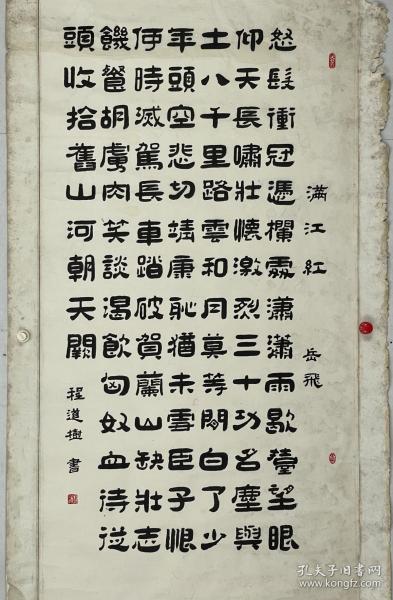 滿江紅 岳飛
怒髮衝冠憑欄處瀟瀟雨歇擡望眼
仰天長嘯壯懷激烈三十功名塵與
土八千里路雲和月莫等閒白了少
年頭空悲切靖康恥猶未雪臣子恨
何時滅駕長車踏破賀蘭山缺壯志
饑餐胡虜肉笑談渴飲匈奴血待從
頭收拾舊山河朝天闕
程道樹書
孔夫子旧书网
www.kongfz.com